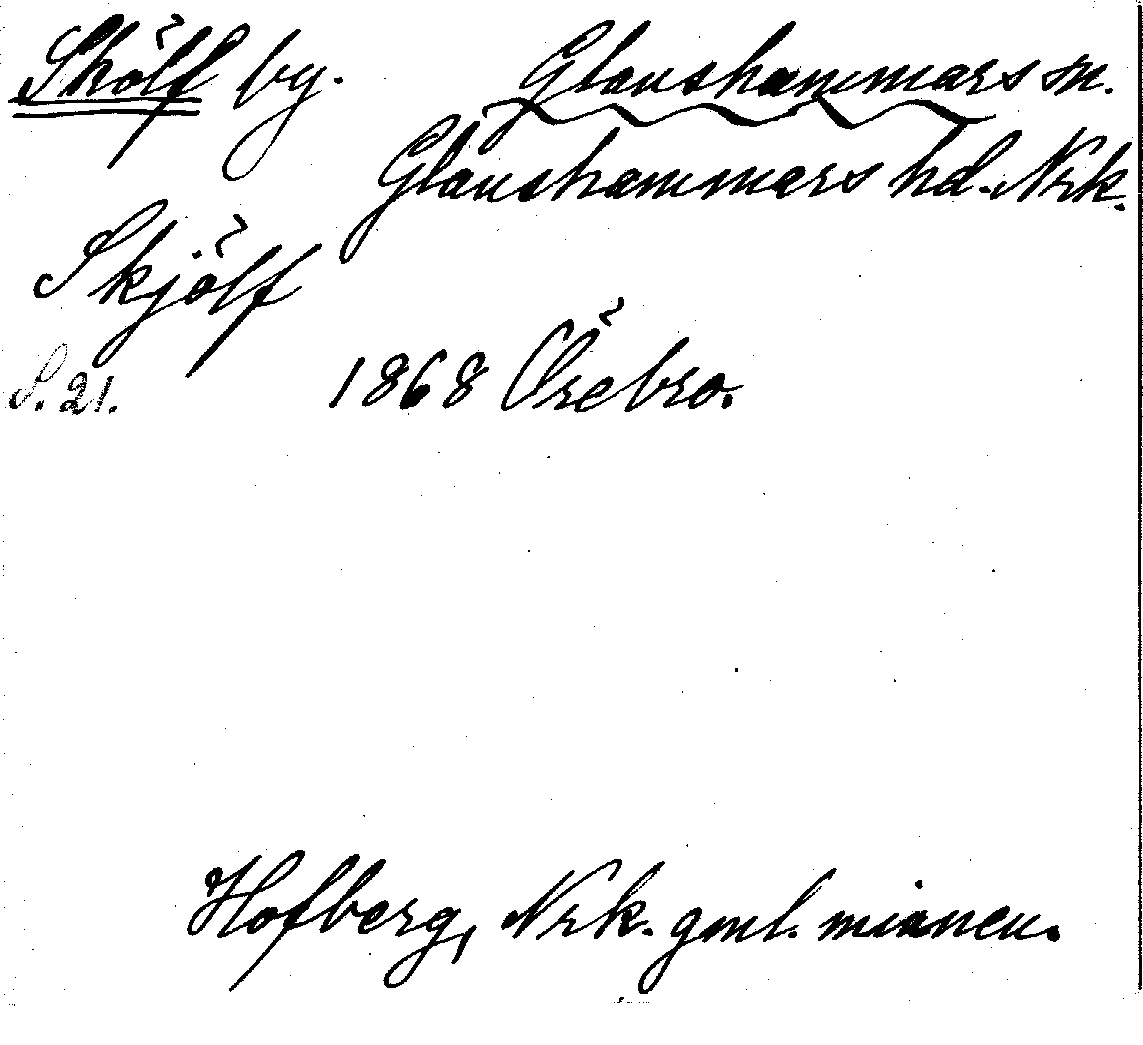 Skölf by. Glanshammars sn.
Glanshammars hd. Nrk.
Skjölf
S. 21. 1868 Örebro.
Hofberg, Nrk. gml. minnen.